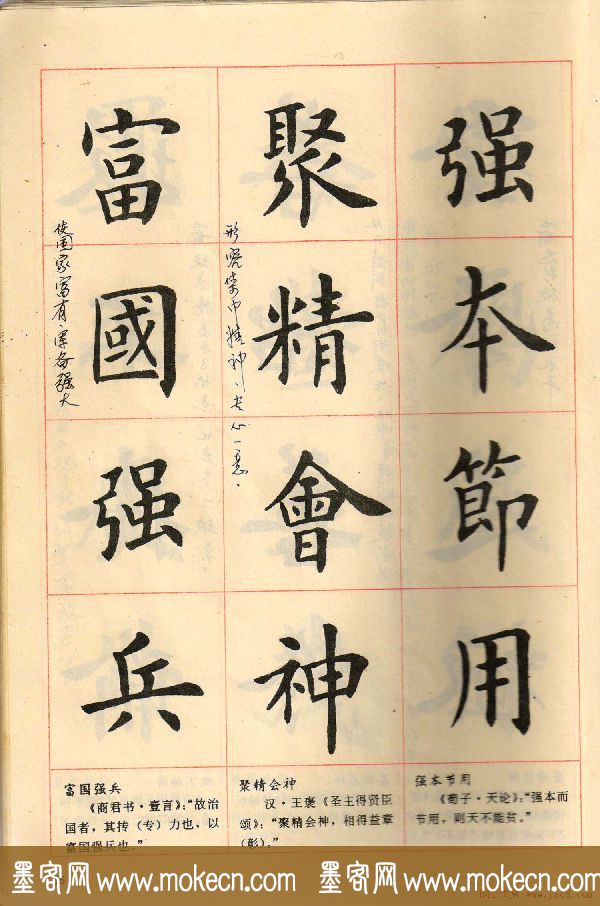 强本節用
聚精會神
形容集中精神，专心一意。
富國强兵
使国家富有，军备强大
强本节用
《荀子·天论》：“强本而
节用，则天不能贫。”
聚精会神
汉·王褒《圣主得贤臣
颂》：“聚精会神，相得益章
（彰）。”
富国强兵
《商君书·壹言》：“故治
国者，其抟（专）力也，以
富国强兵也。”
墨客网 www.mokecn.com 墨客网 www.mokecn.com